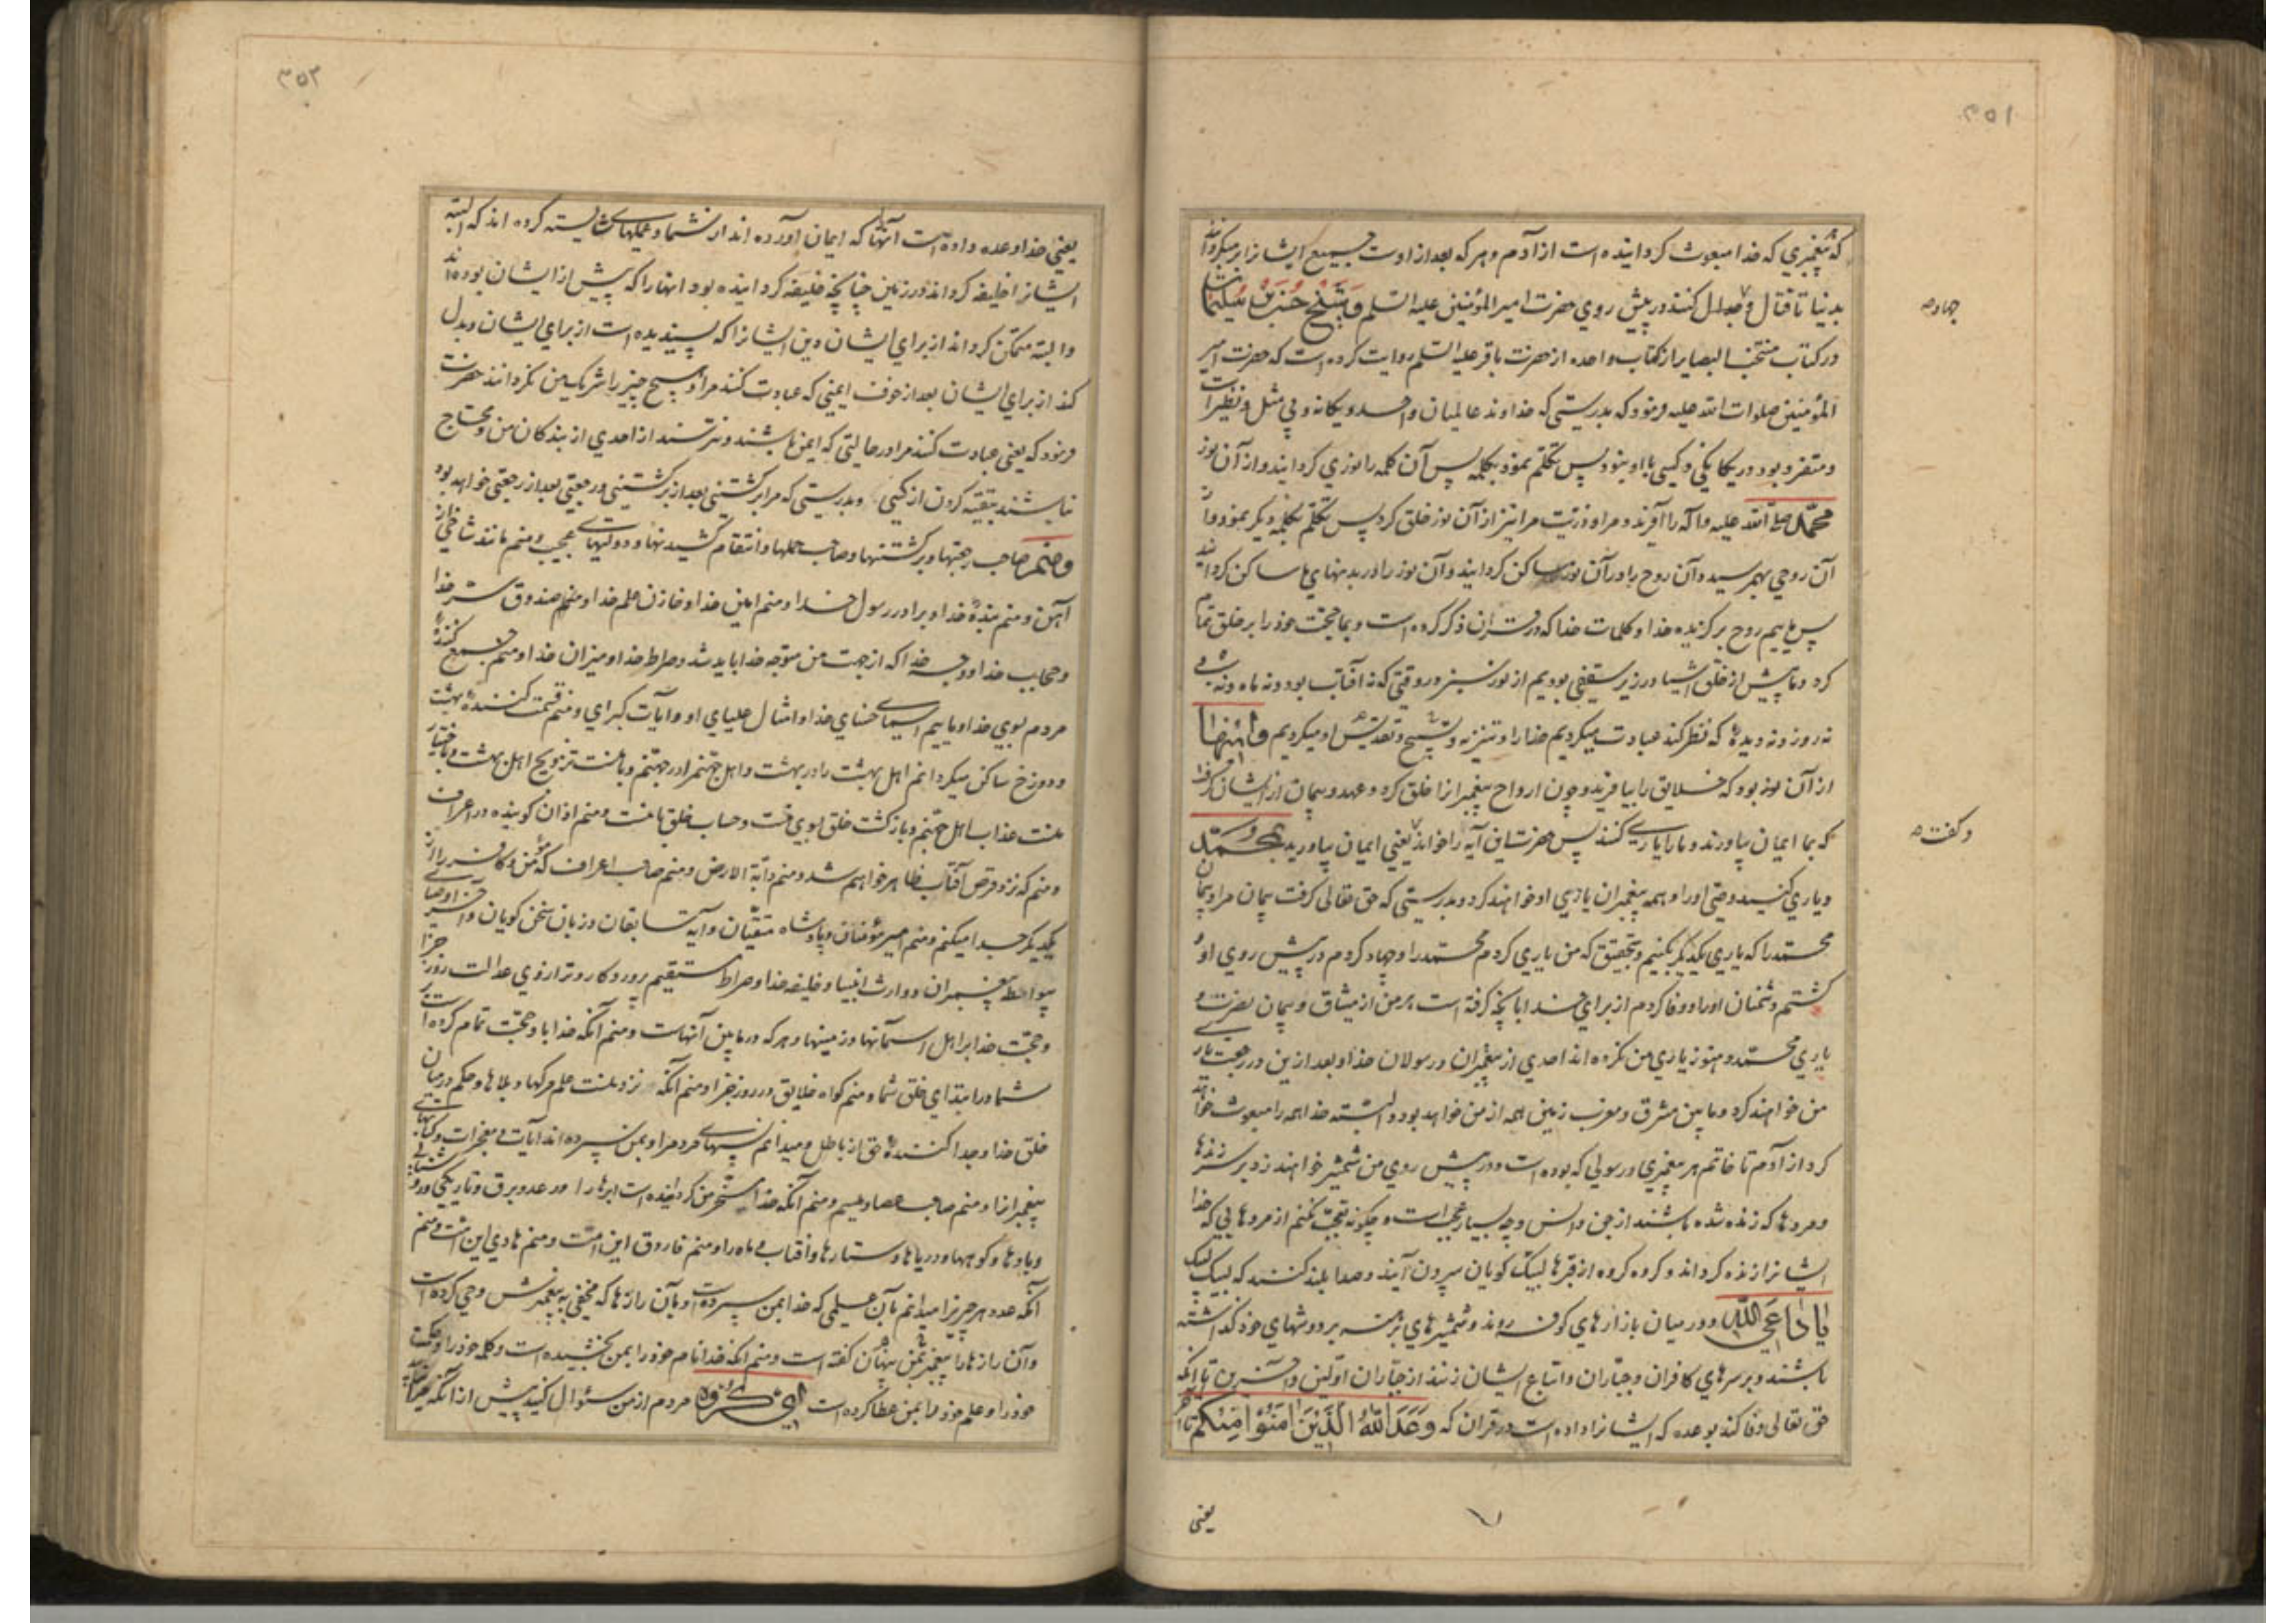 ۳۵۱
که پیغمبری که خدا مبعوث کردانیده است از آدم و هر که بعد از اوست جمیع ایشانرا بر میکرداند
بدنیا تا قتال و جدال کنند در پیش روی حضرت امیر المؤمنین علیه السلم و شیخ حسن بن سلیمان
جهاد صح
در کتاب منتخب البصایر از کتاب واحده از حضرت باقر علیه السلم روایت کرده است که حضرت امیر
المؤمنین صلوات الله علیه فرمود که بدرستی که خداوند عالمیان واحد و یکانه و بی مثل و نظیر است
و متفرد بود در یکانکی و کسی با او نبود پس تکلم نمود بکلمه پس آن کلمه را نوری کردانید و از آن نور
محمد صلی الله علیه و آله را آفرید و مرا و ذریت مرا نیز از آن نور خلق کرد پس تکلم بکلمه دیکر نمود و از
آن روحی بهم رسید و آن روح را در آن نور ساکن کردانید و آن نور را در بدنهای ما ساکن کردانید
پس ماییم روح برکزیده خدا و کلمات خدا که در قران ذکر کرده است و بما حجت خود را بر خلق تمام
کرد و ما پیش از خلق اشیا در زیر سقفی بودیم از نور سبز در وقتی که نه آفتاب بود و نه ماه و نه شب و
نه روز و نه دیدهٔ که نظر کند عبادت میکردیم خدا را و تنزیه و تسبیح و تقدیس او میکردیم و اینها
از آن نور بود که خلایق را بیافریند و چون ارواح پیغمبرانرا خلق کرد و عهد و پیمان از ایشان کرفت
که بما ایمان بیاورند و ما را یاری کنند پس حضرت این آیه را خواند یعنی ایمان بیاورید بمحمد
و کفت صح
و یاری کنید وصی او را و همه پیغمبران یاری او خواهند کرد و بدرستی که حق تعالی کرفت پیمان مرا و پیمان
محمد را که یاری یکدیکر بکنیم و بتحقیق که من یاری کردم محمد را و جهاد کردم در پیش روی او و
کشتم دشمنان او را و وفا کردم از برای خدا بآنچه کرفته است بر من از میثاق و پیمان نصرت و
یاری محمد و هنوز یاری من نکرده اند احدی از پیغمبران و رسولان خدا و بعد ازین در رجعت یاری
من خواهند کرد و مابین مشرق و مغرب زمین همه از من خواهد بود و البته خدا همه را مبعوث خواهد
کرد از آدم تا خاتم هر پیغمبری و رسولی که بوده است و در پیش روی من شمشیر خواهند زد بر سر زندها
و مردها که زنده شده باشند از جن و انس و چه بسیار عجب است و چکونه تعجب نکنم از مردهایی که خدا
ایشانرا زنده کرداند و کروه کروه از قبرها لبیک کویان بیرون آیند و صدا بلند کنند که لبیک لبیک
یا داعی الله و در میان بازارهای کوفه روند و شمشیرهای برهنه بر دوشهای خود کذاشته
باشند و بر سرهای کافران و جباران و اتباع ایشان زنند از جباران اولین و آخرین تا آنکه
حق تعالی وفا کند بوعده که ایشانرا داده است در قران که وعد الله الذین امنوا منکم تا آخر
یعنی
۳۵۲
یعنی خدا وعده داده است آنها که ایمان آورده اند از شما و عملهای شایسته کرده اند که البته
ایشانرا خلیفه کرداند در زمین چنانچه خلیفه کردانیده بود آنها را که پیش از ایشان بوده اند
و البته متمکن کرداند از برای ایشان دین ایشانرا که پسندیده است از برای ایشان و بدل
کند از برای ایشان بعد از خوف ایمنی که عبادت کنند مرا و هیچ چیز را شریک من نکردانند حضرت
فرمود که یعنی عبادت کنند مرا در حالتی که ایمن باشند و نترسند از احدی از بندکان من و محتاج
نباشند بتقیه کردن از کسی و بدرستی که مرا برکشتنی بعد از برکشتنی و رجعتی بعد از رجعتی خواهد بود
و منم صاحب رجعتها و برکشتنها و صاحب حملها و انتقام کشیدنها و دولتهای عجیب و منم مانند شاخی از
آهن و منم بندهٔ خدا و برادر رسول خدا و منم امین خدا و خازن علم خدا و منم صندوق سر خدا
و حجاب خدا و وجه خدا که از جهت من متوجه خدا باید شد و صراط خدا و میزان خدا و منم جمع کنندهٔ
مردم بسوی خدا و ماییم اسمای حسنای خدا و امثال علیای او و آیات کبرای و منم قسمت کنندهٔ بهشت
و دوزخ ساکن میکردانم اهل بهشت را در بهشت و اهل جهنم را در جهنم و با منست تزویج اهل بهشت و باختیار
منست عذاب اهل جهنم و بازکشت خلق بسوی منست و حساب خلق با منست و منم اذان کوینده در اعراف
و منم که نزد قرص آفتاب ظاهر خواهم شد و منم دابة الارض و منم صاحب اعراف که مؤمن و کافر را از
یکدیکر جدا میکنم و منم امیر مؤمنان و پادشاه متقیان و آیه سابقان و زبان سخن کویان و آخر اوصیای
پیغمبران و وارث انبیا و خلیفه خدا و صراط مستقیم پروردکار و ترازوی عدالت روز جزا
و حجت خدا بر اهل آسمانها و زمینها و هر که در مابین آنهاست و منم آنکه خدا باو حجت تمام کرده است
شما در ابتدای خلق شما و منم کواه خلایق در روز جزا و منم آنکه نزد منست علم مرکها و بلاها و حکم در میان
خلق خدا و جدا کنندهٔ حق از باطل و میدانم نسبهای مردم را و بمن سپرده اند آیات و معجزات و کتابهای
پیغمبرانرا و منم صاحب عصا و میسم و منم آنکه خدا مسخر من کردانیده است ابرها را و رعد و برق و تاریکی و روشنایی
و بادها و کوهها و دریاها و ستارها و آفتاب و ماه را و منم فاروق این امت و منم هادی این امت و منم
آنکه عدد هر چیز را میدانم بآن علمی که خدا بمن سپرده است و بآن رازها که مخفی به پیغمبرش وحی کرده است
و آن رازها را پیغمبر بمن پنهان کفته است و منم آنکه خدا نام خود را بمن بخشیده است و کلمه خود را و حکمت
خود را و علم خود را بمن عطا کرده است ای کروه مردم از من سؤال کنید پیش از آنکه